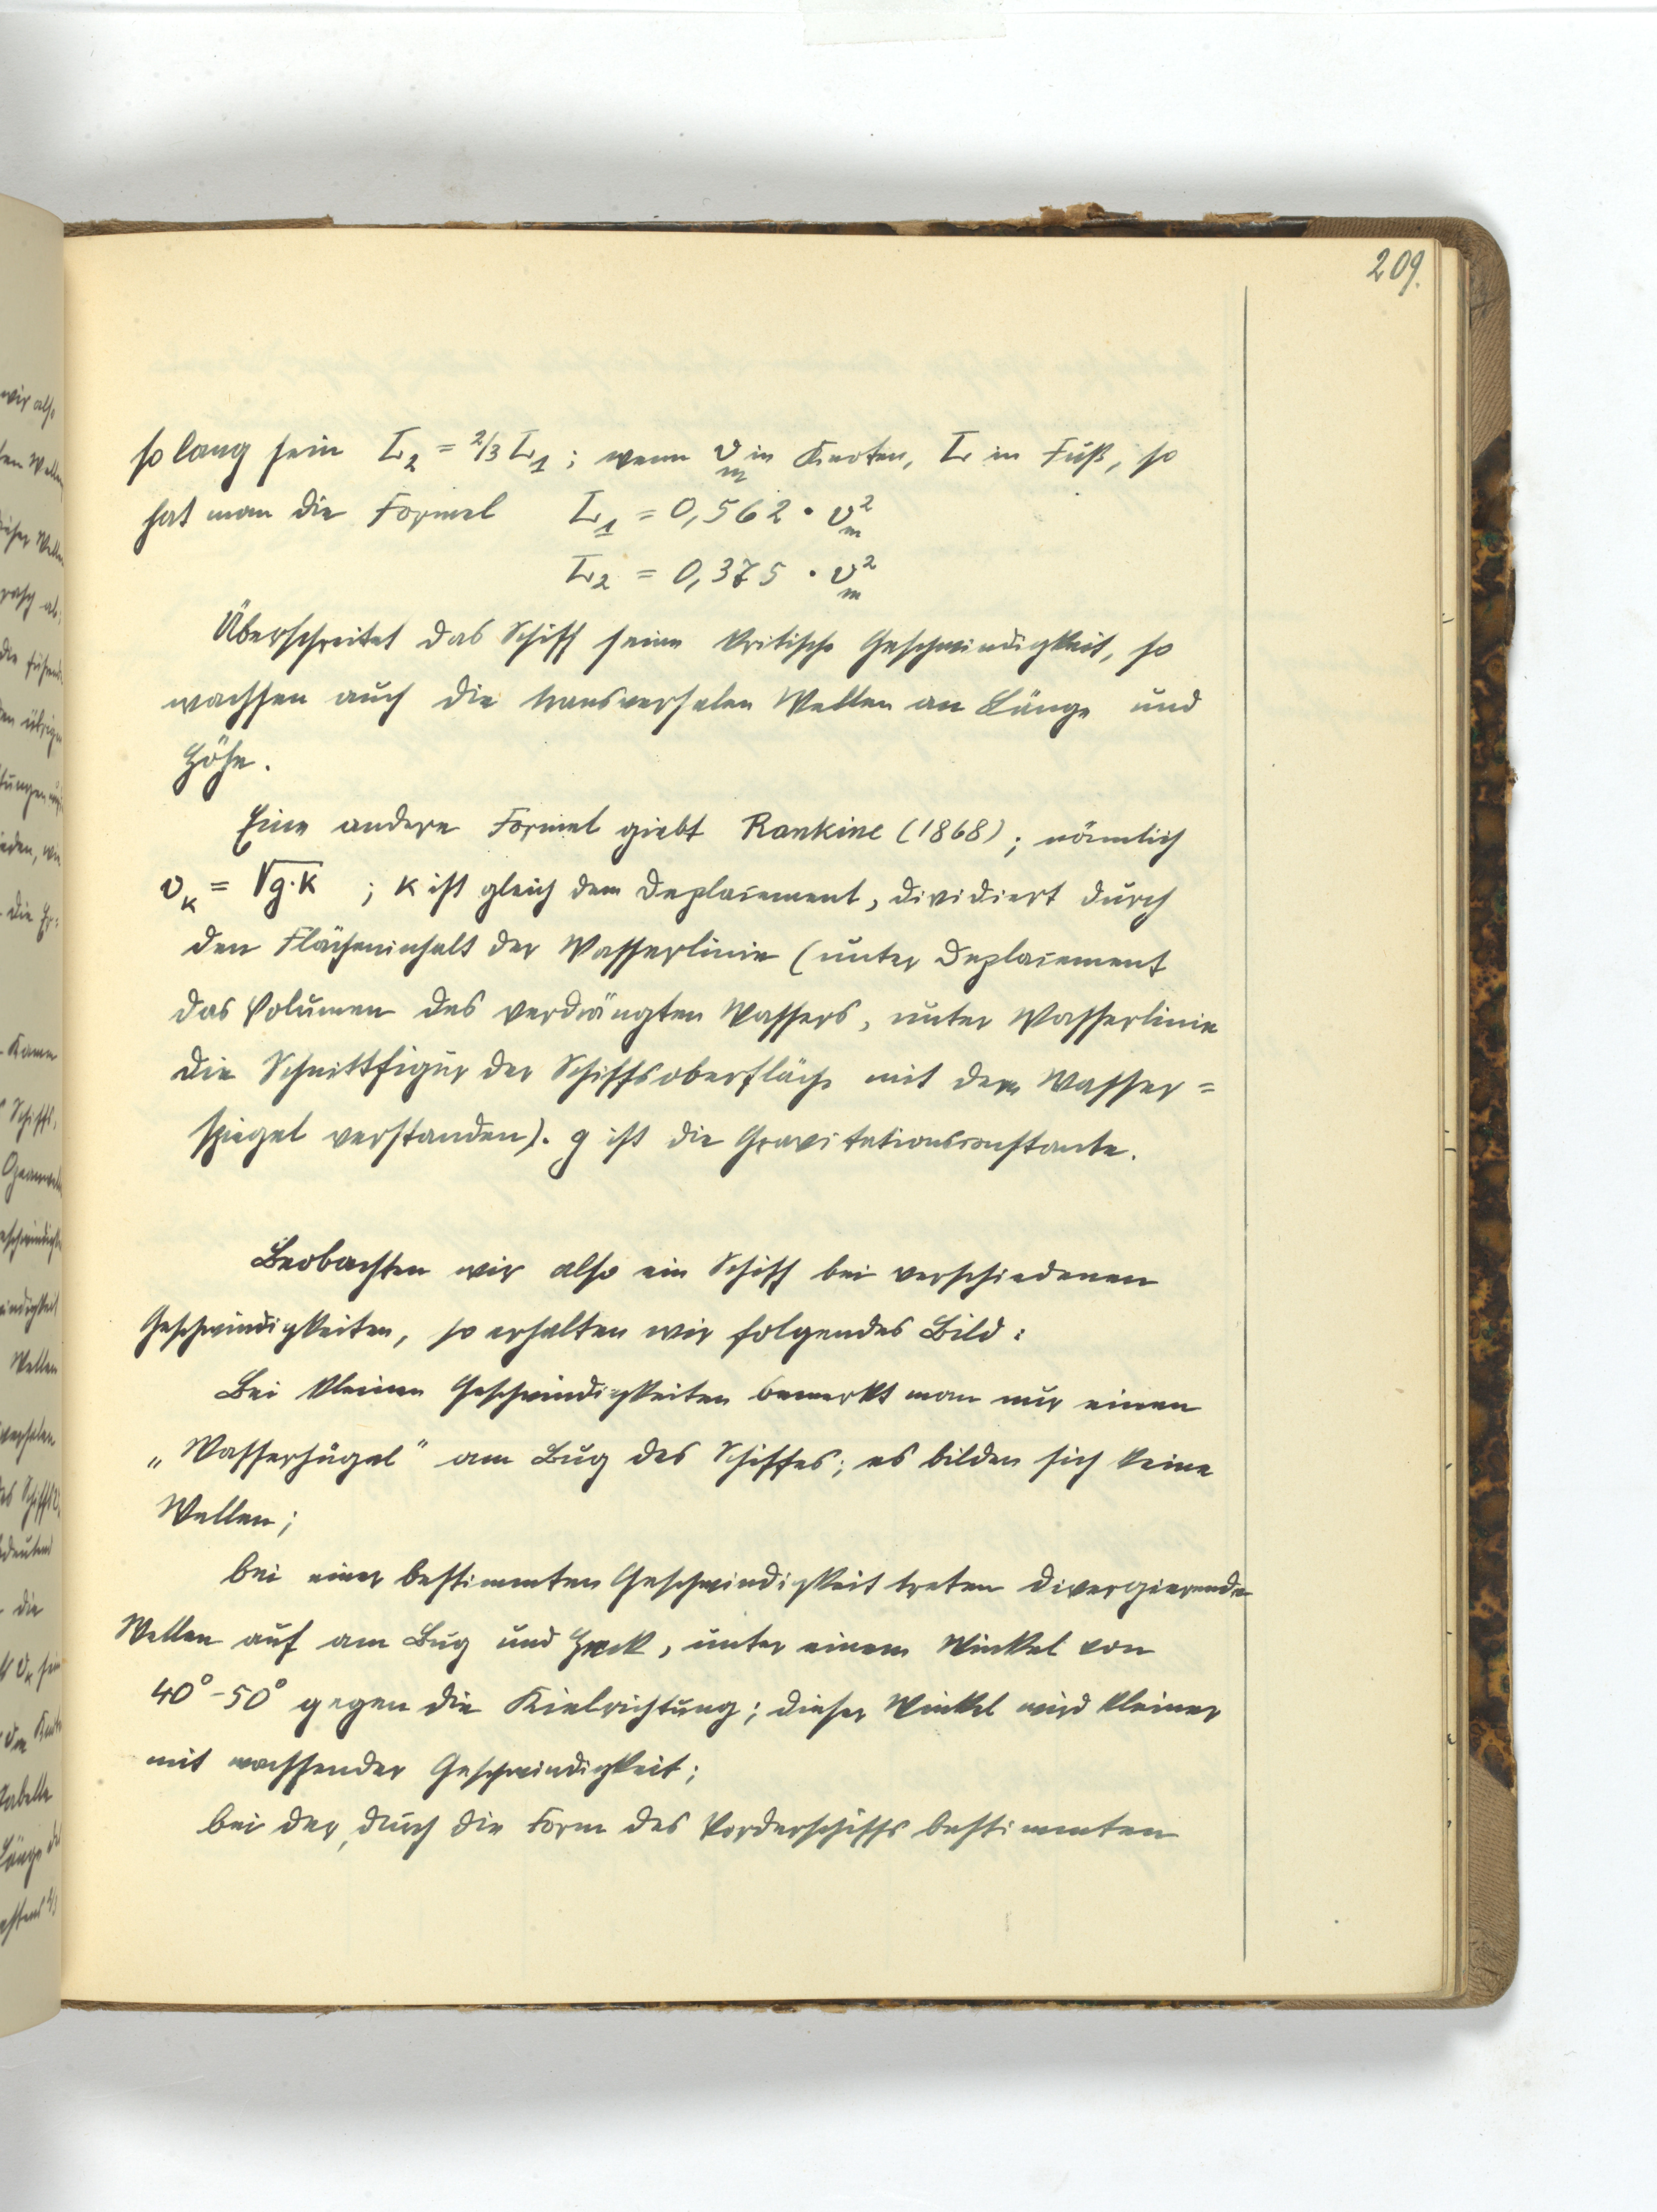 209.
so lang sein L₂ = 2/3 L₁ ; wenn v_m in Knoten, L in Fuß, so
hat man die Formel L₁ = 0,562 · v_m²
L₂ = 0,375 · v_m²
Überschreitet das Schiff seine kritische Geschwindigkeit, so
wachsen auch die transversalen Wellen an Länge und
Höhe.
Eine andere Formel giebt Rankine (1868); nämlich
v_K = √g·K ; K ist gleich dem Deplacement, dividiert durch
den Flächeninhalt der Wasserlinie (unter Deplacement
das Volumen des verdrängten Wassers, unter Wasserlinie
die Schnittfigur der Schiffsoberfläche mit dem Wasser=
spiegel verstanden). g ist die Gravitationsconstante.
Beobachten wir also ein Schiff bei verschiedenen
Geschwindigkeiten, so erhalten wir folgendes Bild:
Bei kleinen Geschwindigkeiten bemerkt man nur einen
„Wasserhügel" am Bug des Schiffes; es bilden sich keine
Wellen;
bei einer bestimmten Geschwindigkeit treten divergierende
Wellen auf am Bug und Heck, unter einem Winkel von
40°-50° gegen die Kielrichtung; dieser Winkel wird kleiner
mit wachsender Geschwindigkeit;
bei der, durch die Form des Vorderschiffs bestimmten